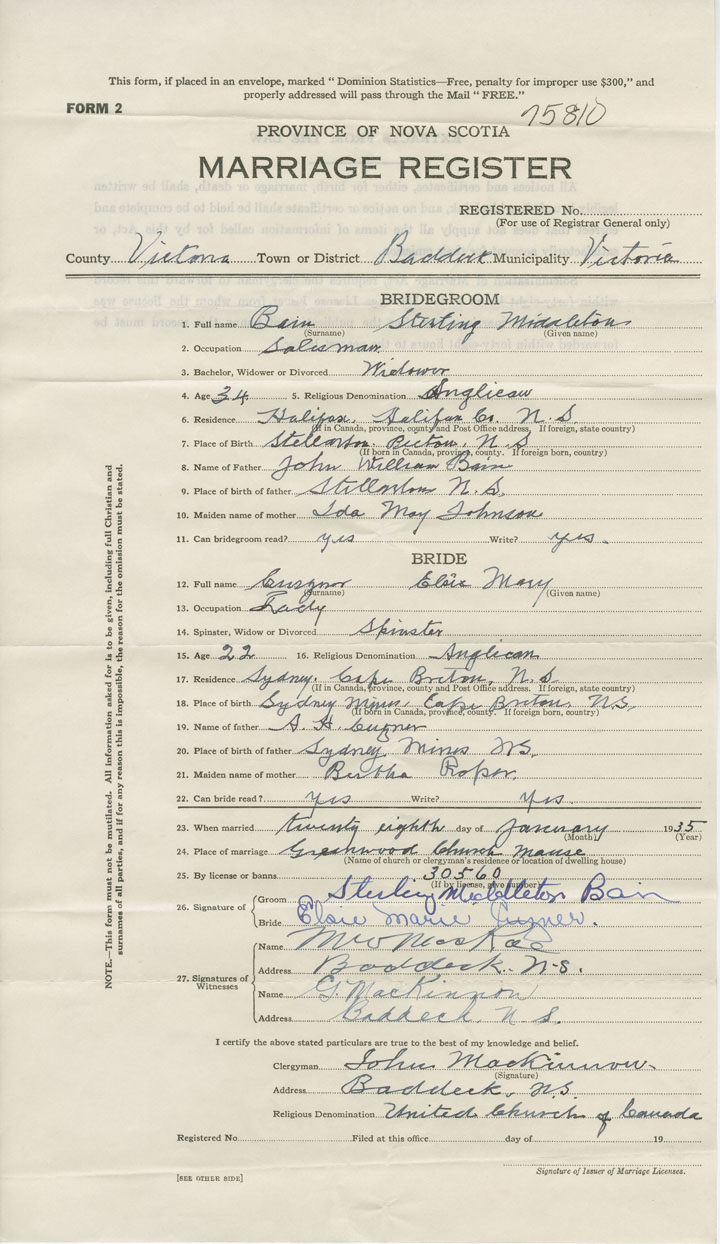 This form, if placed in an envelope, marked " Dominion Statistics—Free, penalty for improper use $300," and
properly addressed will pass through the Mail " FREE."
FORM 2
75810
PROVINCE OF NOVA SCOTIA
MARRIAGE REGISTER
REGISTERED No.
(For use of Registrar General only)
County Victoria Town or District Baddeck Municipality Victoria
BRIDEGROOM
1. Full name Bain Sterling Middleton
(Surname) (Given name)
2. Occupation Salesman
3. Bachelor, Widower or Divorced Widower
4. Age 34 5. Religious Denomination Anglican
6. Residence Halifax, Halifax Co. N.S.
(If in Canada, province, county and Post Office address. If foreign, state country)
7. Place of Birth Stellarton. Pictou, N.S
(If born in Canada, province, county. If foreign born, country)
8. Name of Father John William Bain
9. Place of birth of father Stellarton N.S.
10. Maiden name of mother Ida May Johnson
11. Can bridegroom read? yes Write? yes.
BRIDE
12. Full name Elsie Mary
(Surname) (Given name)
13. Occupation Lady
14. Spinster, Widow or Divorced Spinster
15. Age 22 16. Religious Denomination Anglican
17. Residence Sydney. Cape Breton, N.S.
(If in Canada, province, county and Post Office address. If foreign, state country)
18. Place of birth Sydney Mines, Cape Breton, N.S.
(If born in Canada, province, county. If foreign born, country)
19. Name of father A. H. Cuzner
20. Place of birth of father Sydney Mines NS.
21. Maiden name of mother Bertha Roper.
22. Can bride read? yes Write? yes.
23. When married twenty eighth day of January 1935
(Month) (Year)
24. Place of marriage Greenwood Church Manse
(Name of church or clergyman's residence or location of dwelling house)
25. By license or banns 30560
(If by license, give number)
26. Signature of Groom Sterling Middleton Bain
Bride Elsie Marie Cuzner.
27. Signatures of Witnesses
Name MacRae
Address Baddeck. N.S.
Name G. MacKinnon
Address Baddeck N.S.
I certify the above stated particulars are true to the best of my knowledge and belief.
Clergyman John MacKinnon
(Signature)
Address Baddeck, N.S.
Religious Denomination United Church of Canada
Registered No. Filed at this office day of 19
Signature of Issuer of Marriage Licenses.
[SEE OTHER SIDE]
NOTE.—This form must not be mutilated. All information asked for is to be given, including full Christian and
surnames of all parties, and if for any reason this is impossible, the reason for the omission must be stated.